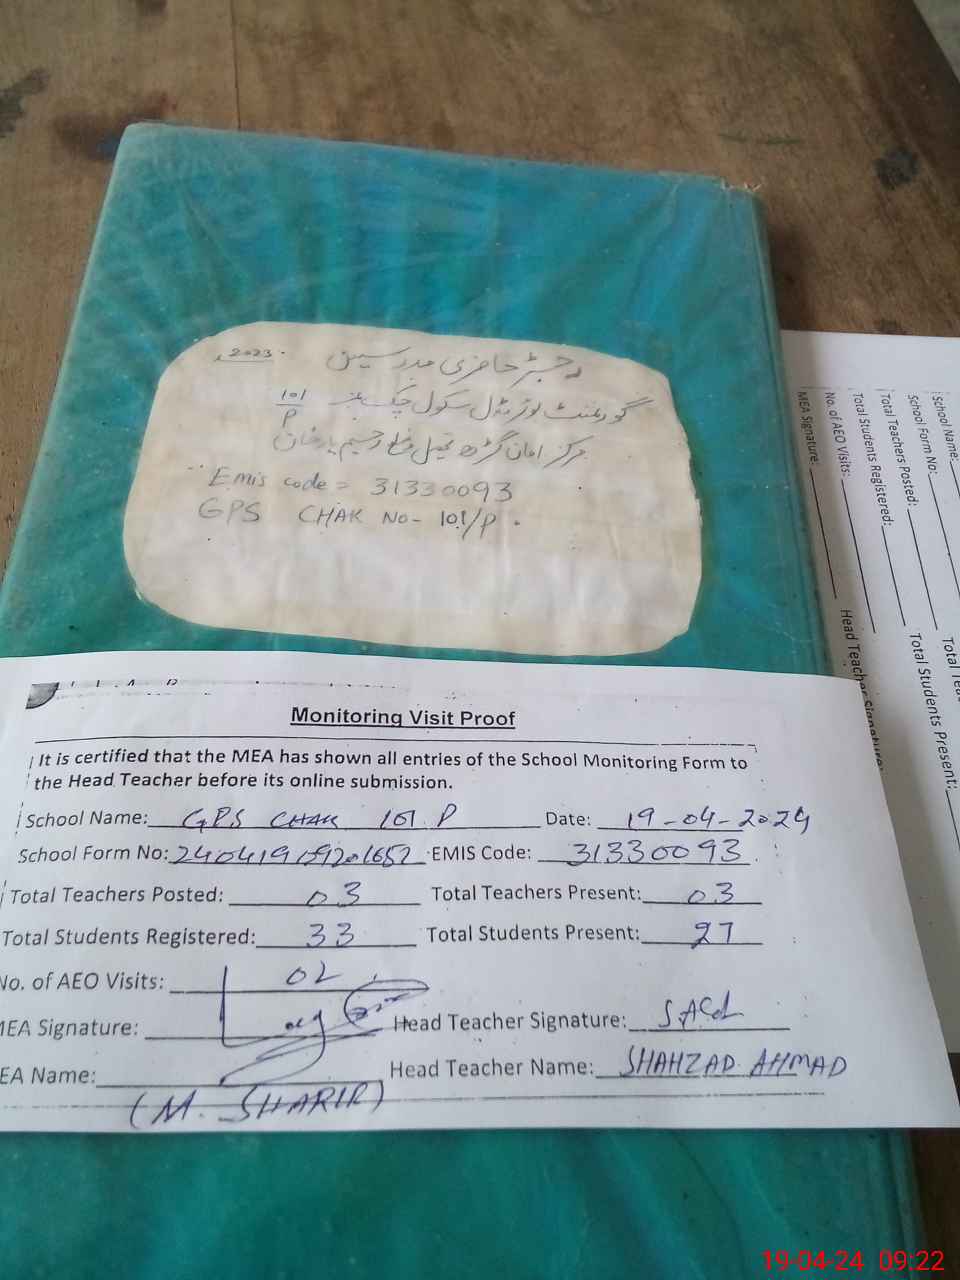 2023ء رجسٹر حاضری مدرسین
گورنمنٹ سکول چک نمبر 101/P
مرکز امان گڑھ رحیم یارخان
Emis code = 31330093
GPS CHAK No- 101/P.
Monitoring Visit Proof
It is certified that the MEA has shown all entries of the School Monitoring Form to
the Head Teacher before its online submission.
School Name: GPS CHAK 101.P Date: 19-04-2024
School Form No: EMIS Code: 31330093
Total Teachers Posted: 03 Total Teachers Present: 03
Total Students Registered: 33 Total Students Present: 27
No. of AEO Visits: 02
MEA Signature: Head Teacher Signature:
EA Name: Head Teacher Name: SHAHZAD AHMAD
(M. SHARIF)
School Name:
School Form No: Total
Total Teachers Posted: Total Students Present:
Total Students Registered:
No. of AEO Visits: Head Teacher Signature:
MEA Signature:
19-04-24 09:22